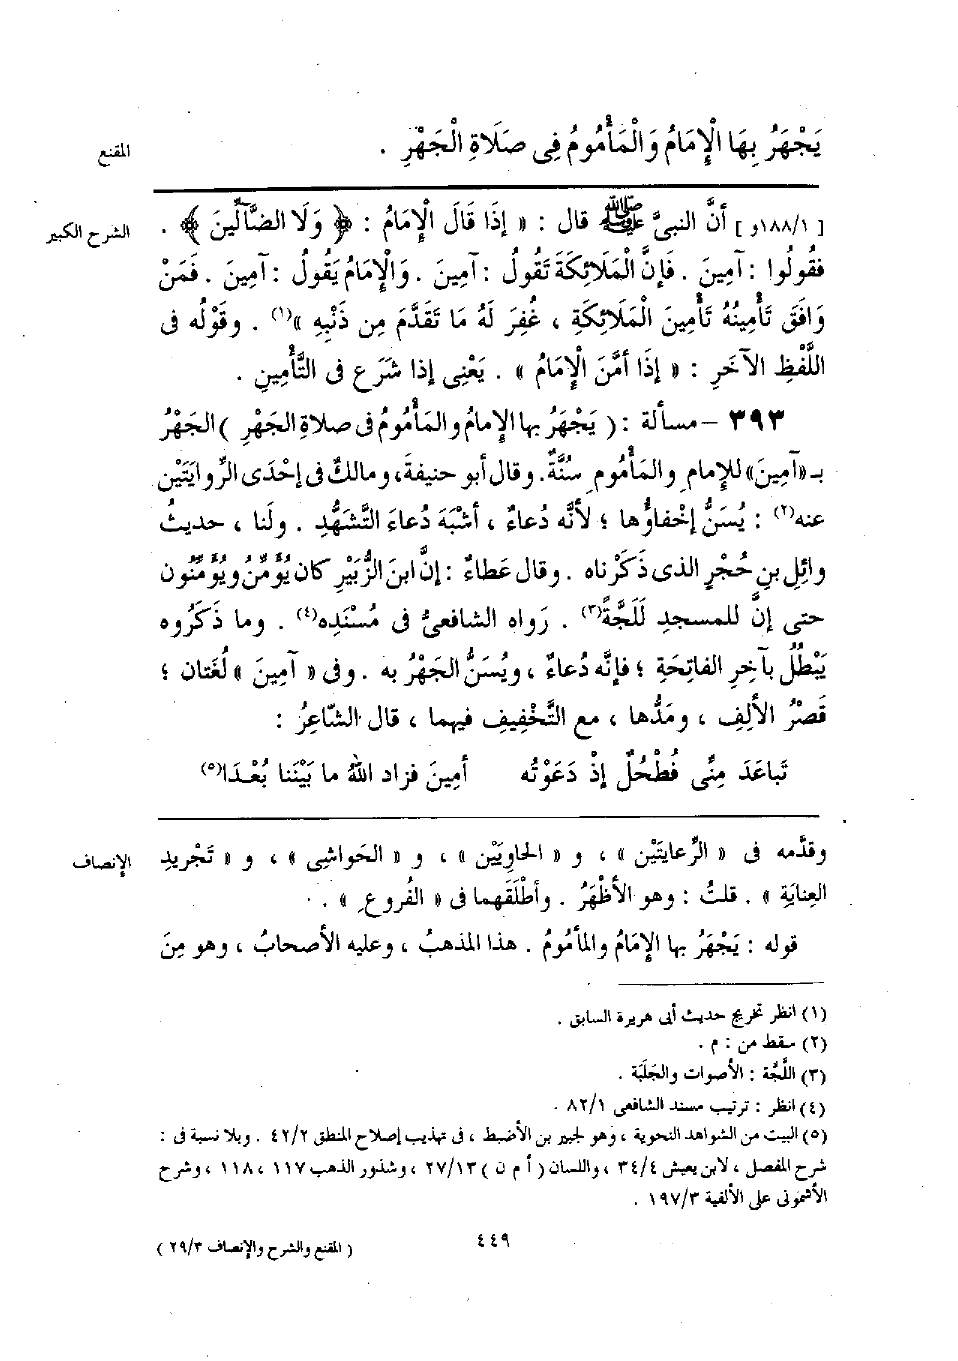 يَجْهَرُ بِهَا الْإِمَامُ وَالْمَأْمُومُ فِى صَلَاةِ الْجَهْرِ .
المقنع
[ ١٨٨/١و ] أنَّ النبىَّ ﷺ قال : « إذَا قَالَ الْإِمَامُ : ﴿ وَلَا الضَّآلِّينَ ﴾ .
الشرح الكبير
فقُولُوا : آمِينَ . فَإنَّ الْمَلَائِكَةَ تَقُولُ : آمِينَ . وَالْإِمَامُ يَقُولُ : آمِينَ . فَمَنْ
وَافَقَ تَأْمِينُهُ تَأْمِينَ الْمَلَائِكَةِ ، غُفِرَ لَهُ مَا تَقَدَّمَ مِن ذَنْبِهِ »(١) . وقَوْلُه فى
اللَّفْظِ الآخَرِ : « إذَا أمَّنَ الْإمَامُ » . يَعْنِى إذا شَرَع فى التَّأْمِينِ .
٣٩٣ – مسألة : ( يَجْهَرُ بها الإِمامُ والمَأْمُومُ فى صلاةِ الجَهْرِ ) الجَهْرُ
بـ «آمِينَ» للإمامِ والمَأْمُومِ سُنَّةٌ. وقال أبو حنيفةَ، ومالكٌ فى إحْدَى الرِّوايَتَيْن
عنه(٢) : يُسَنُّ إخْفاؤُها ؛ لأنَّه دُعاءٌ ، أشْبَهَ دُعاءَ التَّشَهُّدِ . ولَنا ، حديثُ
وائِلِ بنِ حُجْرٍ الذى ذَكَرْناه . وقال عَطاءٌ : إنَّ ابنَ الزُّبَيْرِ كان يُؤَمِّنُ ويُؤَمِّنُون
حتى إنَّ للمسجدِ لَلَجَّةً(٣) . رَواه الشافعىُّ فى مُسْنَدِه(٤) . وما ذَكَرُوه
يَبْطُلُ بآخِرِ الفاتِحَةِ ؛ فإنَّه دُعاءٌ ، ويُسَنُّ الجَهْرُ به . وفى « آمِينَ » لُغَتان ؛
قَصْرُ الألِفِ ، ومَدُّها ، مع التَّخْفِيفِ فيهما ، قال الشّاعِرُ :
تَباعَدَ مِنِّى فُطْحُلٌ إذْ دَعَوْتُه أمِينَ فزاد اللهُ ما بَيْنَنا بُعْدَا(٥)
وقدَّمه فى « الرِّعايتَيْن » ، و « الحاوِيَيْن » ، و « الحَواشِى » ، و « تَجْريدِ
الإنصاف
العِنايَةِ » . قلتُ : وهو الأظْهَرُ . وأطْلَقَهما فى « الفُروعِ » .
قوله : يَجْهَرُ بها الإمَامُ والمأمُومُ . هذا المذهبُ ، وعليه الأصحابُ ، وهو مِنَ
(١) انظر تخريج حديث أبى هريرة السابق .
(٢) سقط من : م .
(٣) اللَّجَّة : الأصوات والجَلَبَة .
(٤) انظر : ترتيب مسند الشافعى ٨٢/١ .
(٥) البيت من الشواهد النحوية ، وهو لجبير بن الأضبط ، فى تهذيب إصلاح المنطق ٤٢/٢ . وبلا نسبة فى :
شرح المفصل ، لابن يعيش ٣٤/٤ ، واللسان ( أ م ن ) ٢٧/١٣ ، وشذور الذهب ١١٧ ، ١١٨ ، وشرح
الأشمونى على الألفية ١٩٧/٣ .
٤٤٩
( المقنع والشرح والإنصاف ٢٩/٣ )